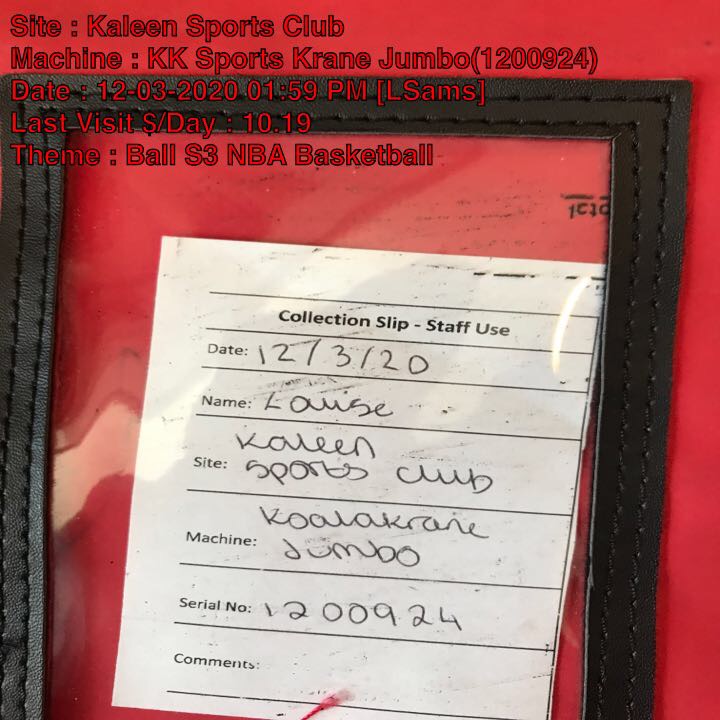 Site : Kaleen Sports Club
Machine : KK Sports Krane Jumbo(1200924)
Date : 12-03-2020 01:59 PM [LSams]
Last Visit $/Day : 10.19
Theme : Ball S3 NBA Basketball
Collection Slip - Staff Use
Date: 12/3/20
Name: Louise
Site: Kaleen
Sports Club
Machine: Koalakrane
Jumbo
Serial No: 1200924
Comments: